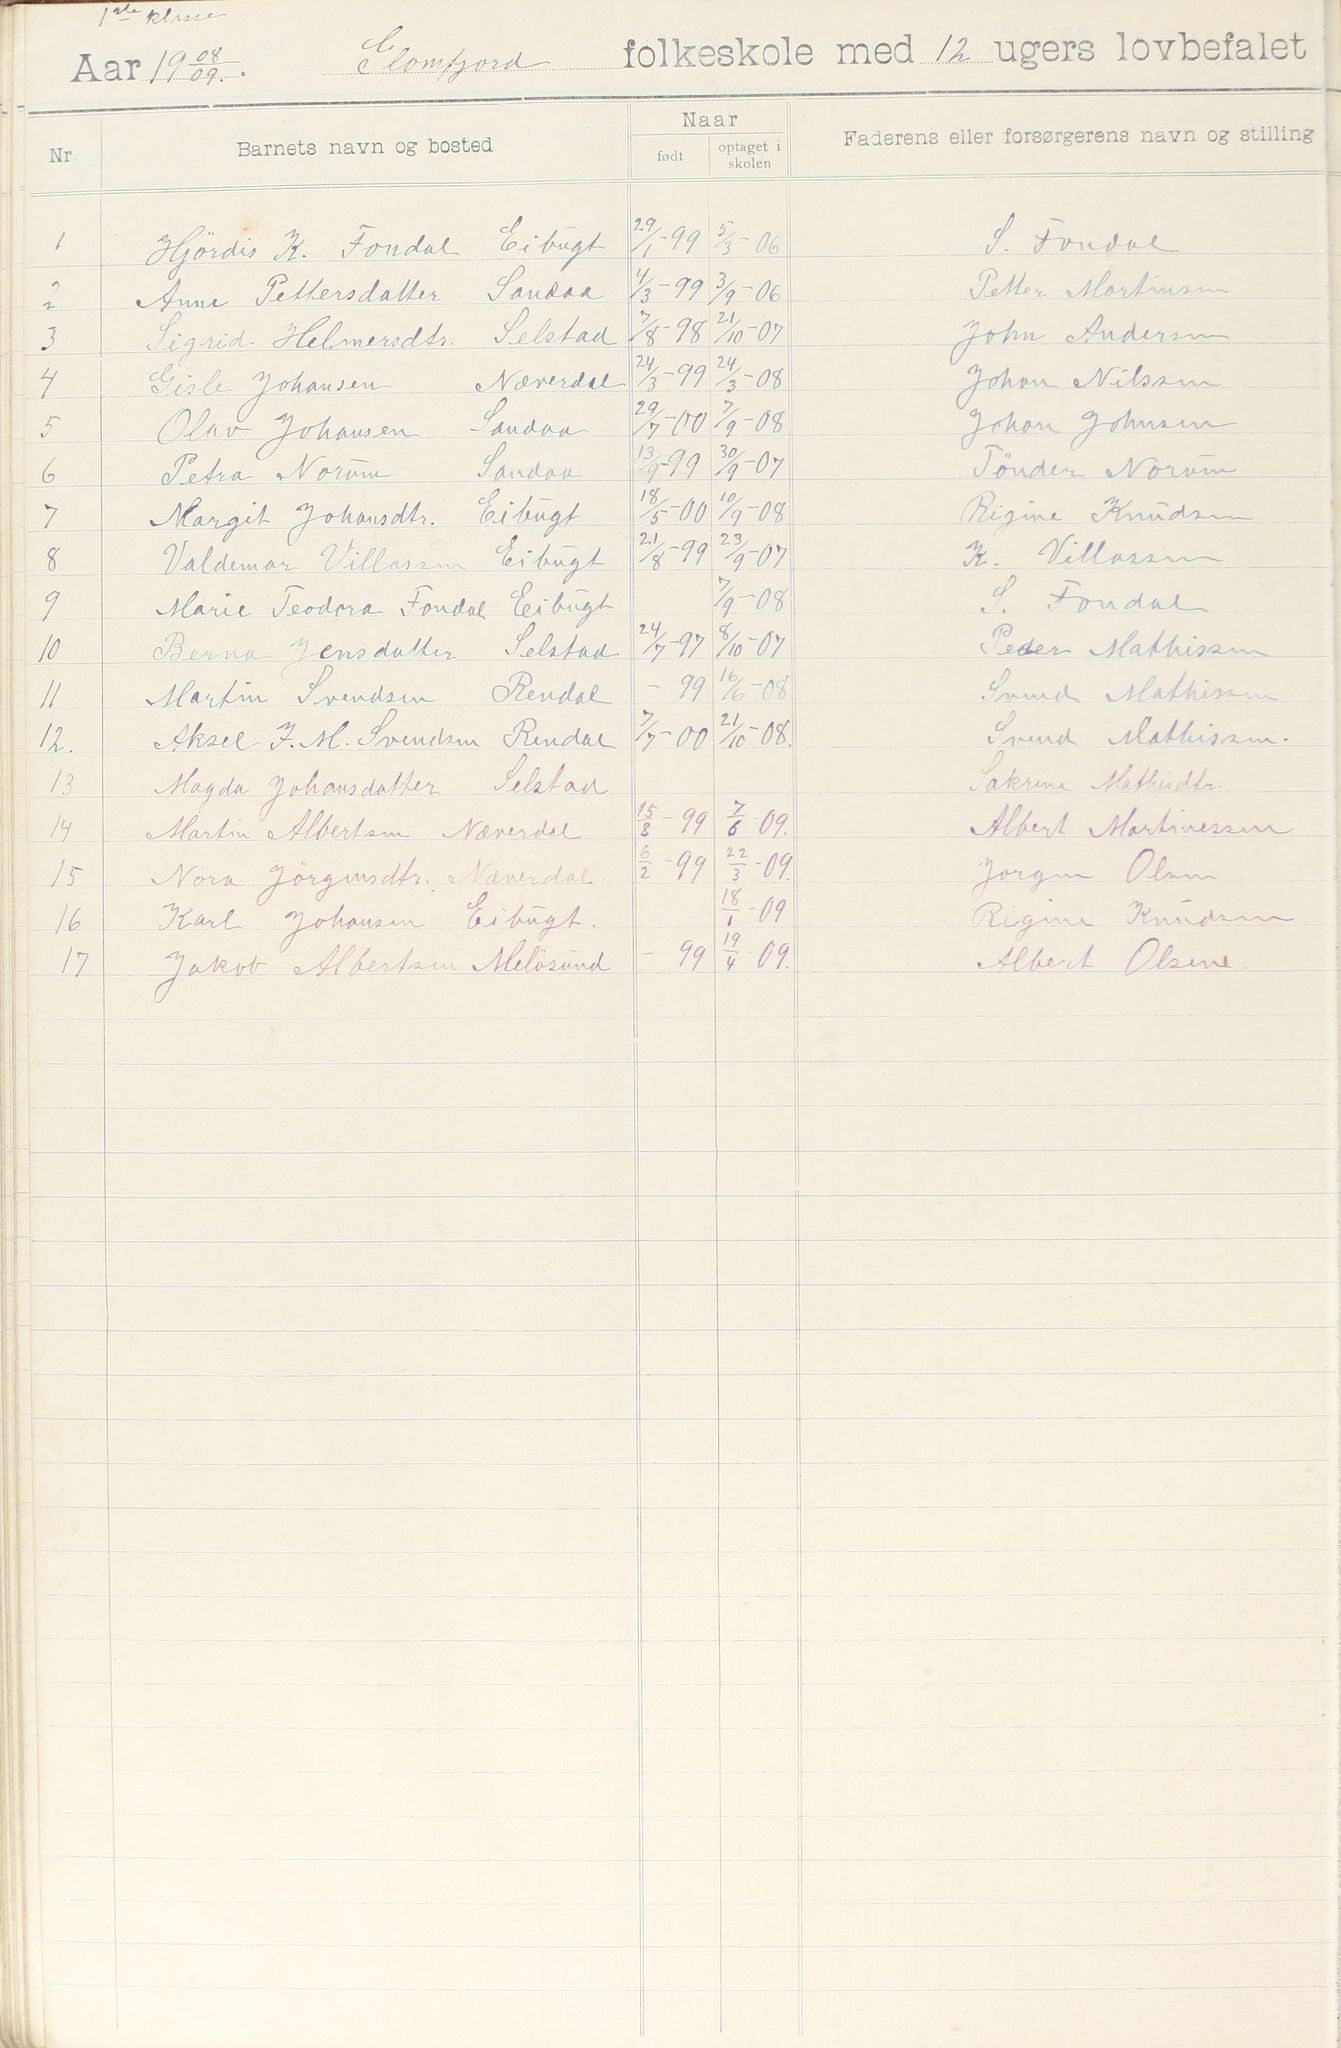 1ste klasse
Aar 19 08/09. Glomfjord folkeskole med 12 ugers lovbefalet
Nr. Barnets navn og bosted Naar Faderens eller forsørgerens navn og stilling
født optaget i skolen
1 Hjördis K. Fondal Eibugt 29/1-99 5/3-06 S. Fondal
2 Anne Pettersdatter Sandaa 4/3-99 3/9-06 Petter Martinsen
3 Sigrid Helmersdtr. Selstad 7/8-98 21/10-07 John Andersen
4 Gisle Johansen Næverdal 24/3-99 24/3-08 Johan Nilssen
5 Olav Johansen Sandaa 29/7-00 7/9-08 Johan Johnsen
6 Petra Norum Sandaa 13/9-99 30/9-07 Tönder Norum
7 Margit Johansdtr. Eibugt 18/5-00 10/9-08 Rigine Knudsen
8 Valdemar Villassen Eibugt 21/8-99 23/9-07 K. Villassen
9 Marie Teodora Fondal Eibugt 7/9-08 S. Fondal
10 Berna Jensdatter Selstad 24/7-97 8/10-07 Peder Mathissen
11 Martin Svendsen Rendal - 99 16/6-08 Svend Mathissen
12. Aksel J. M. Svendsen Rendal 7/7-00 21/10-08. Svend Mathissen.
13 Magda Johansdatter Selstad Sakrine Mathisdtr.
14 Martin Albertsen Næverdal 15/8-99 7/6-09. Albert Martinessen
15 Nora Jörgensdtr. Næverdal. 6/2-99 22/3-09. Jorgen Olsen
16 Karl Johansen Eibugt. 18/1-09 Rigine Knudsen
17 Jakob Albertsen Melösund - 99 19/4-09. Albert Olsene.